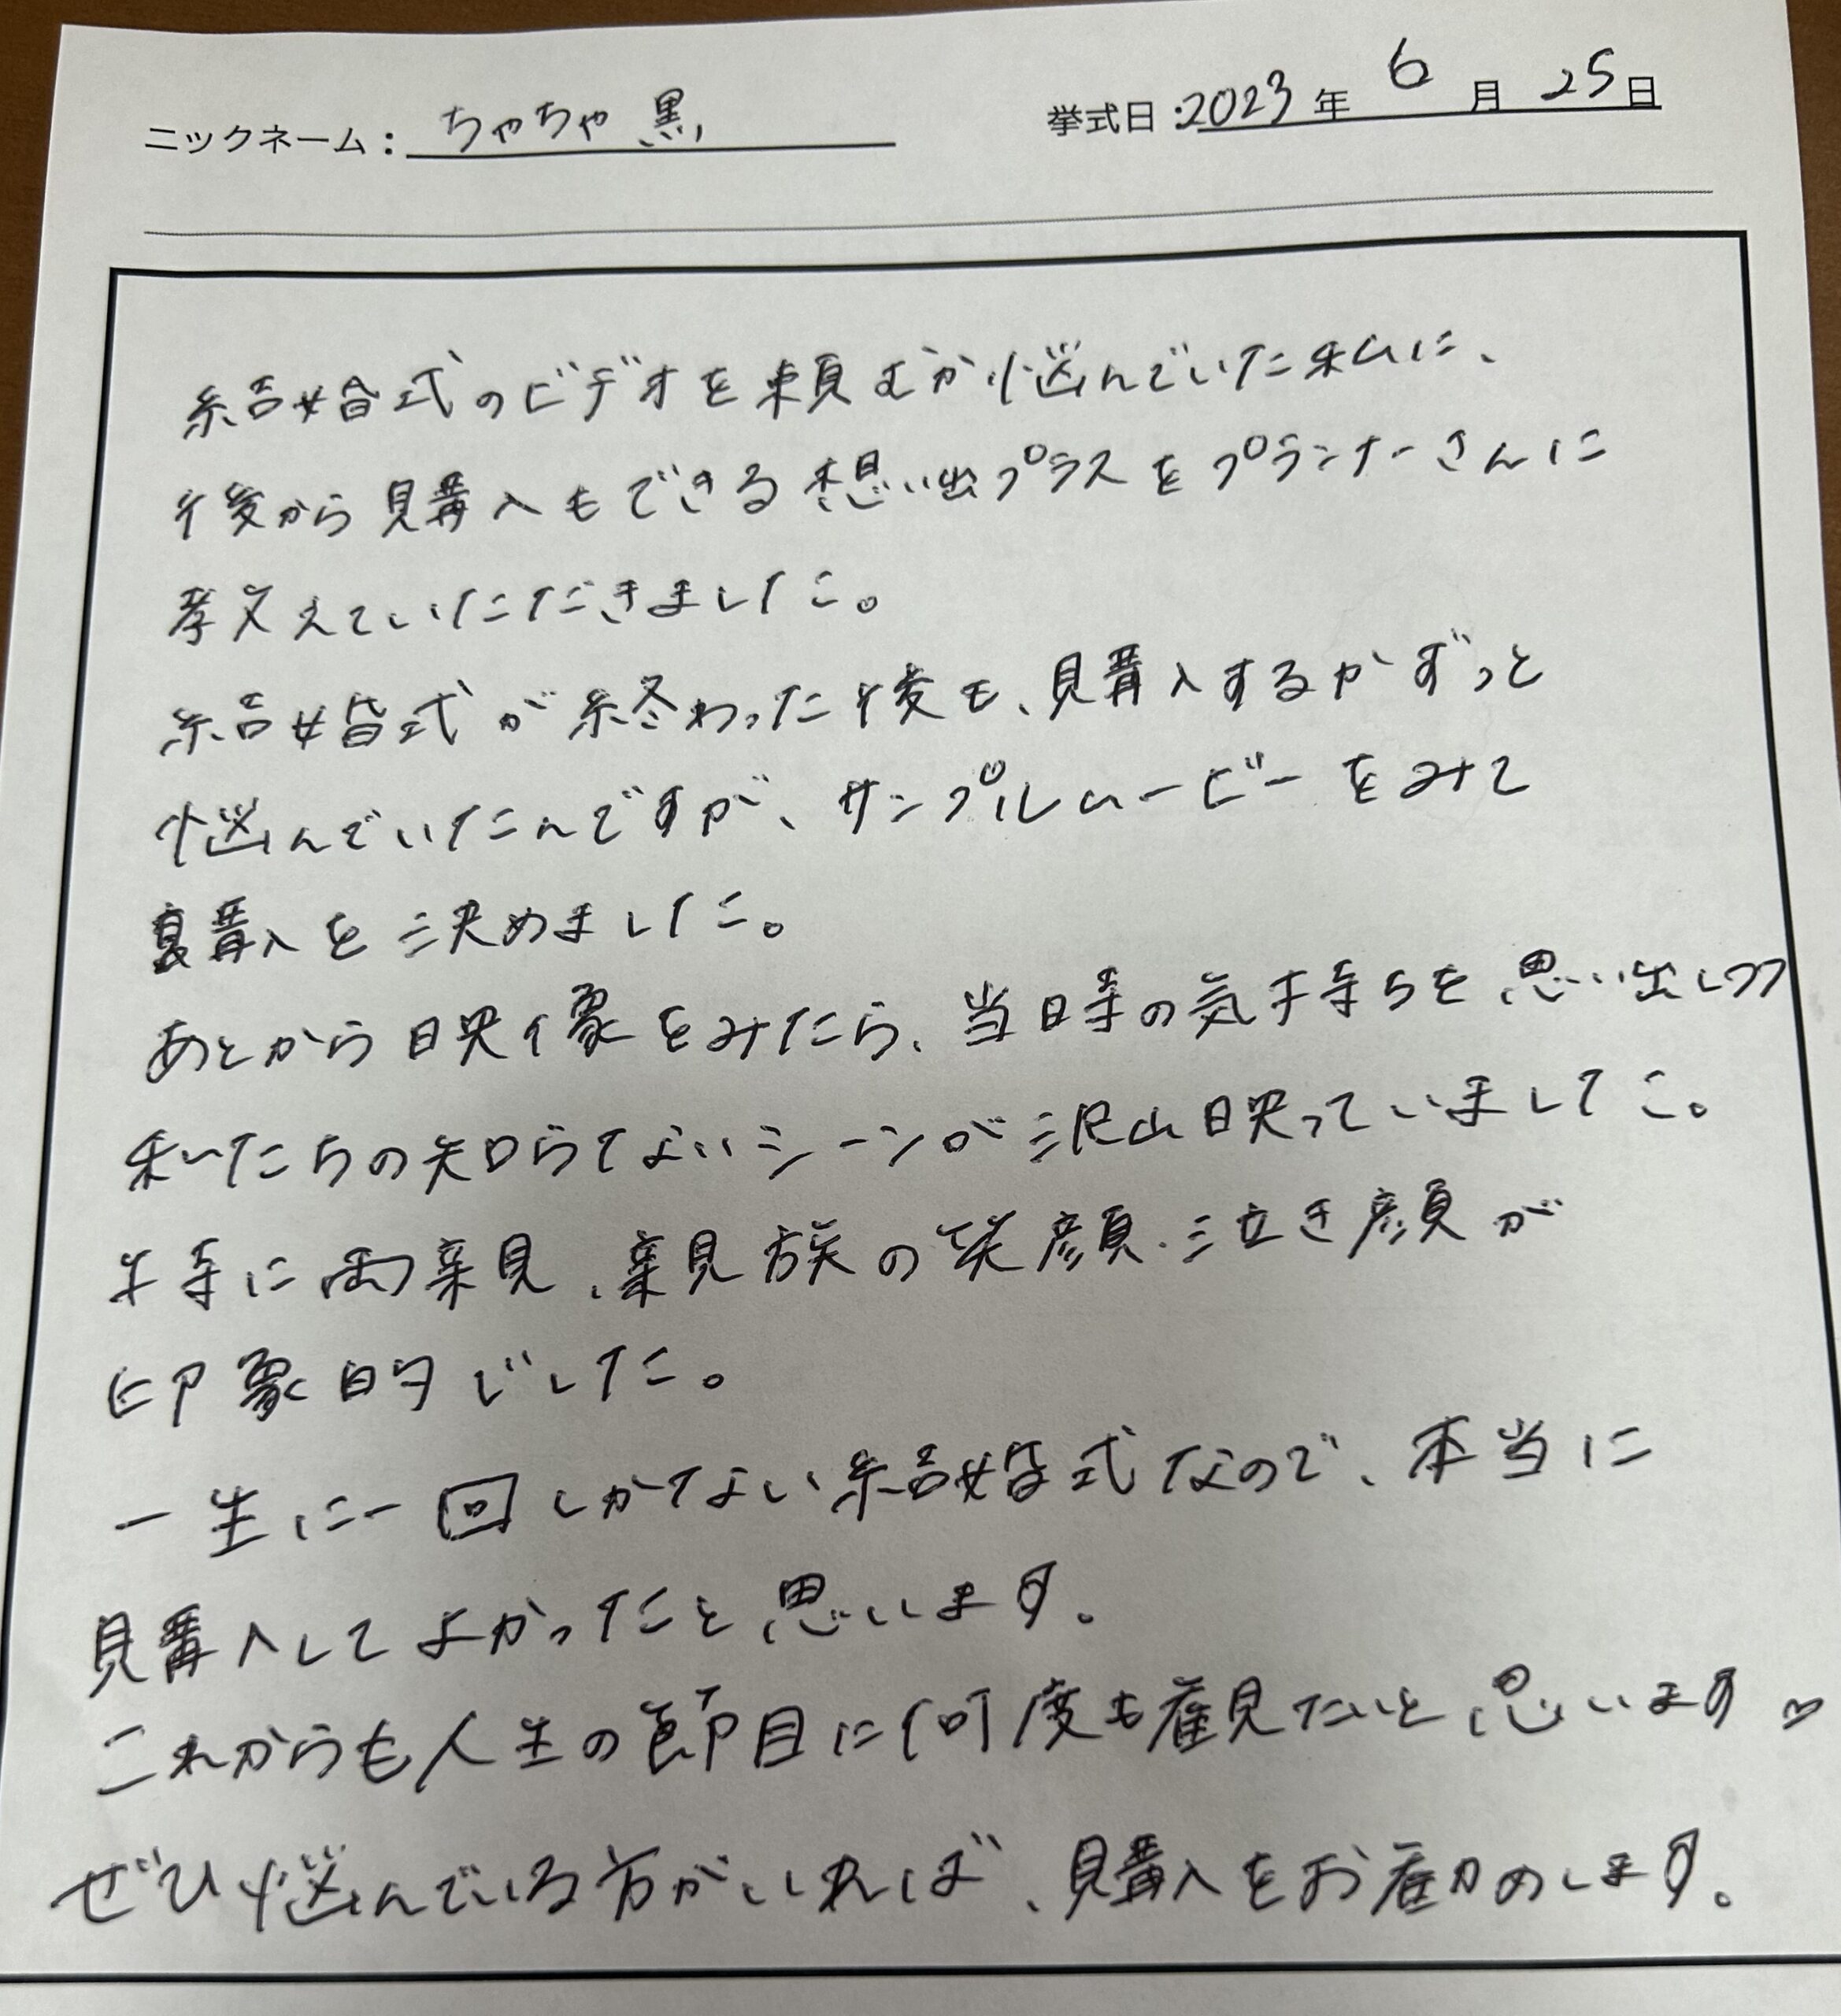 ニックネーム： ちゃちゃ黒
挙式日：2023年 6月 25日
結婚式のビデオを頼むか悩んでいた私に、
後から購入もできる想い出プラスをプランナーさんに
教えていただきました。
結婚式が終わった後も、購入するかずっと
悩んでいたんですが、サンプルムービーをみて
購入を決めました。
あとから映像をみたら、当時の気持ちを思い出しつつ
私たちの知らないシーンが沢山映っていました。
特に両親、親族の笑顔・泣き顔が
印象的でした。
一生に一回しかない結婚式なので、本当に
購入してよかったと思います。
これからも人生の節目に何度も観たいと思います♡
ぜひ悩んでいる方がいれば、購入をお薦めします。